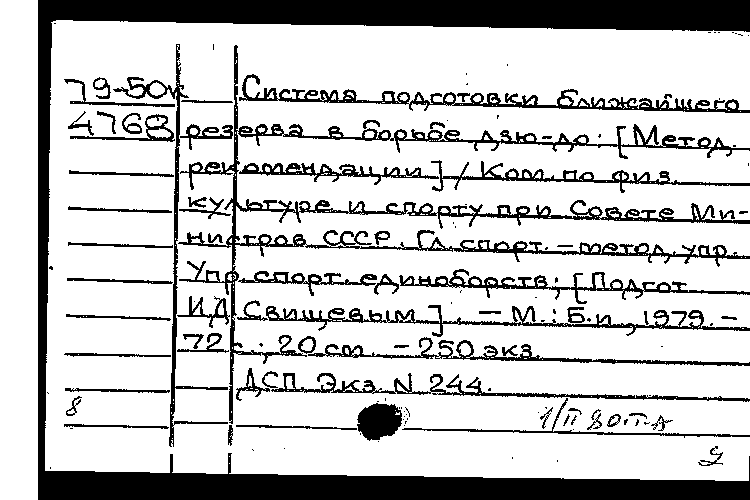 79-50к Система подготовки ближайшего
4768 резерва в борьбе дзю-до: [Метод.
рекомендации] / Ком. по физ.
культуре и спорту при Совете Ми-
нистров СССР. Гл. спорт.-метод. упр.
Упр. спорт. единоборств; [Подгот.
И.Д. Свищевым]. - М.: Б.и., 1979. -
72 с.; 20 см. - 250 экз.
ДСП. Экз. N 244.
8